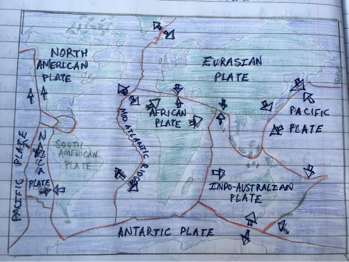 NORTH
AMERICAN
PLATE
EURASIAN
PLATE
AFRICAN
PLATE
PACIFIC
PLATE
MID ATLANTIC RIDGE
SOUTH
AMERICAN
PLATE
PACIFIC PLATE
PLATE
INDO-AUSTRALIAN
PLATE
ANTARTIC PLATE